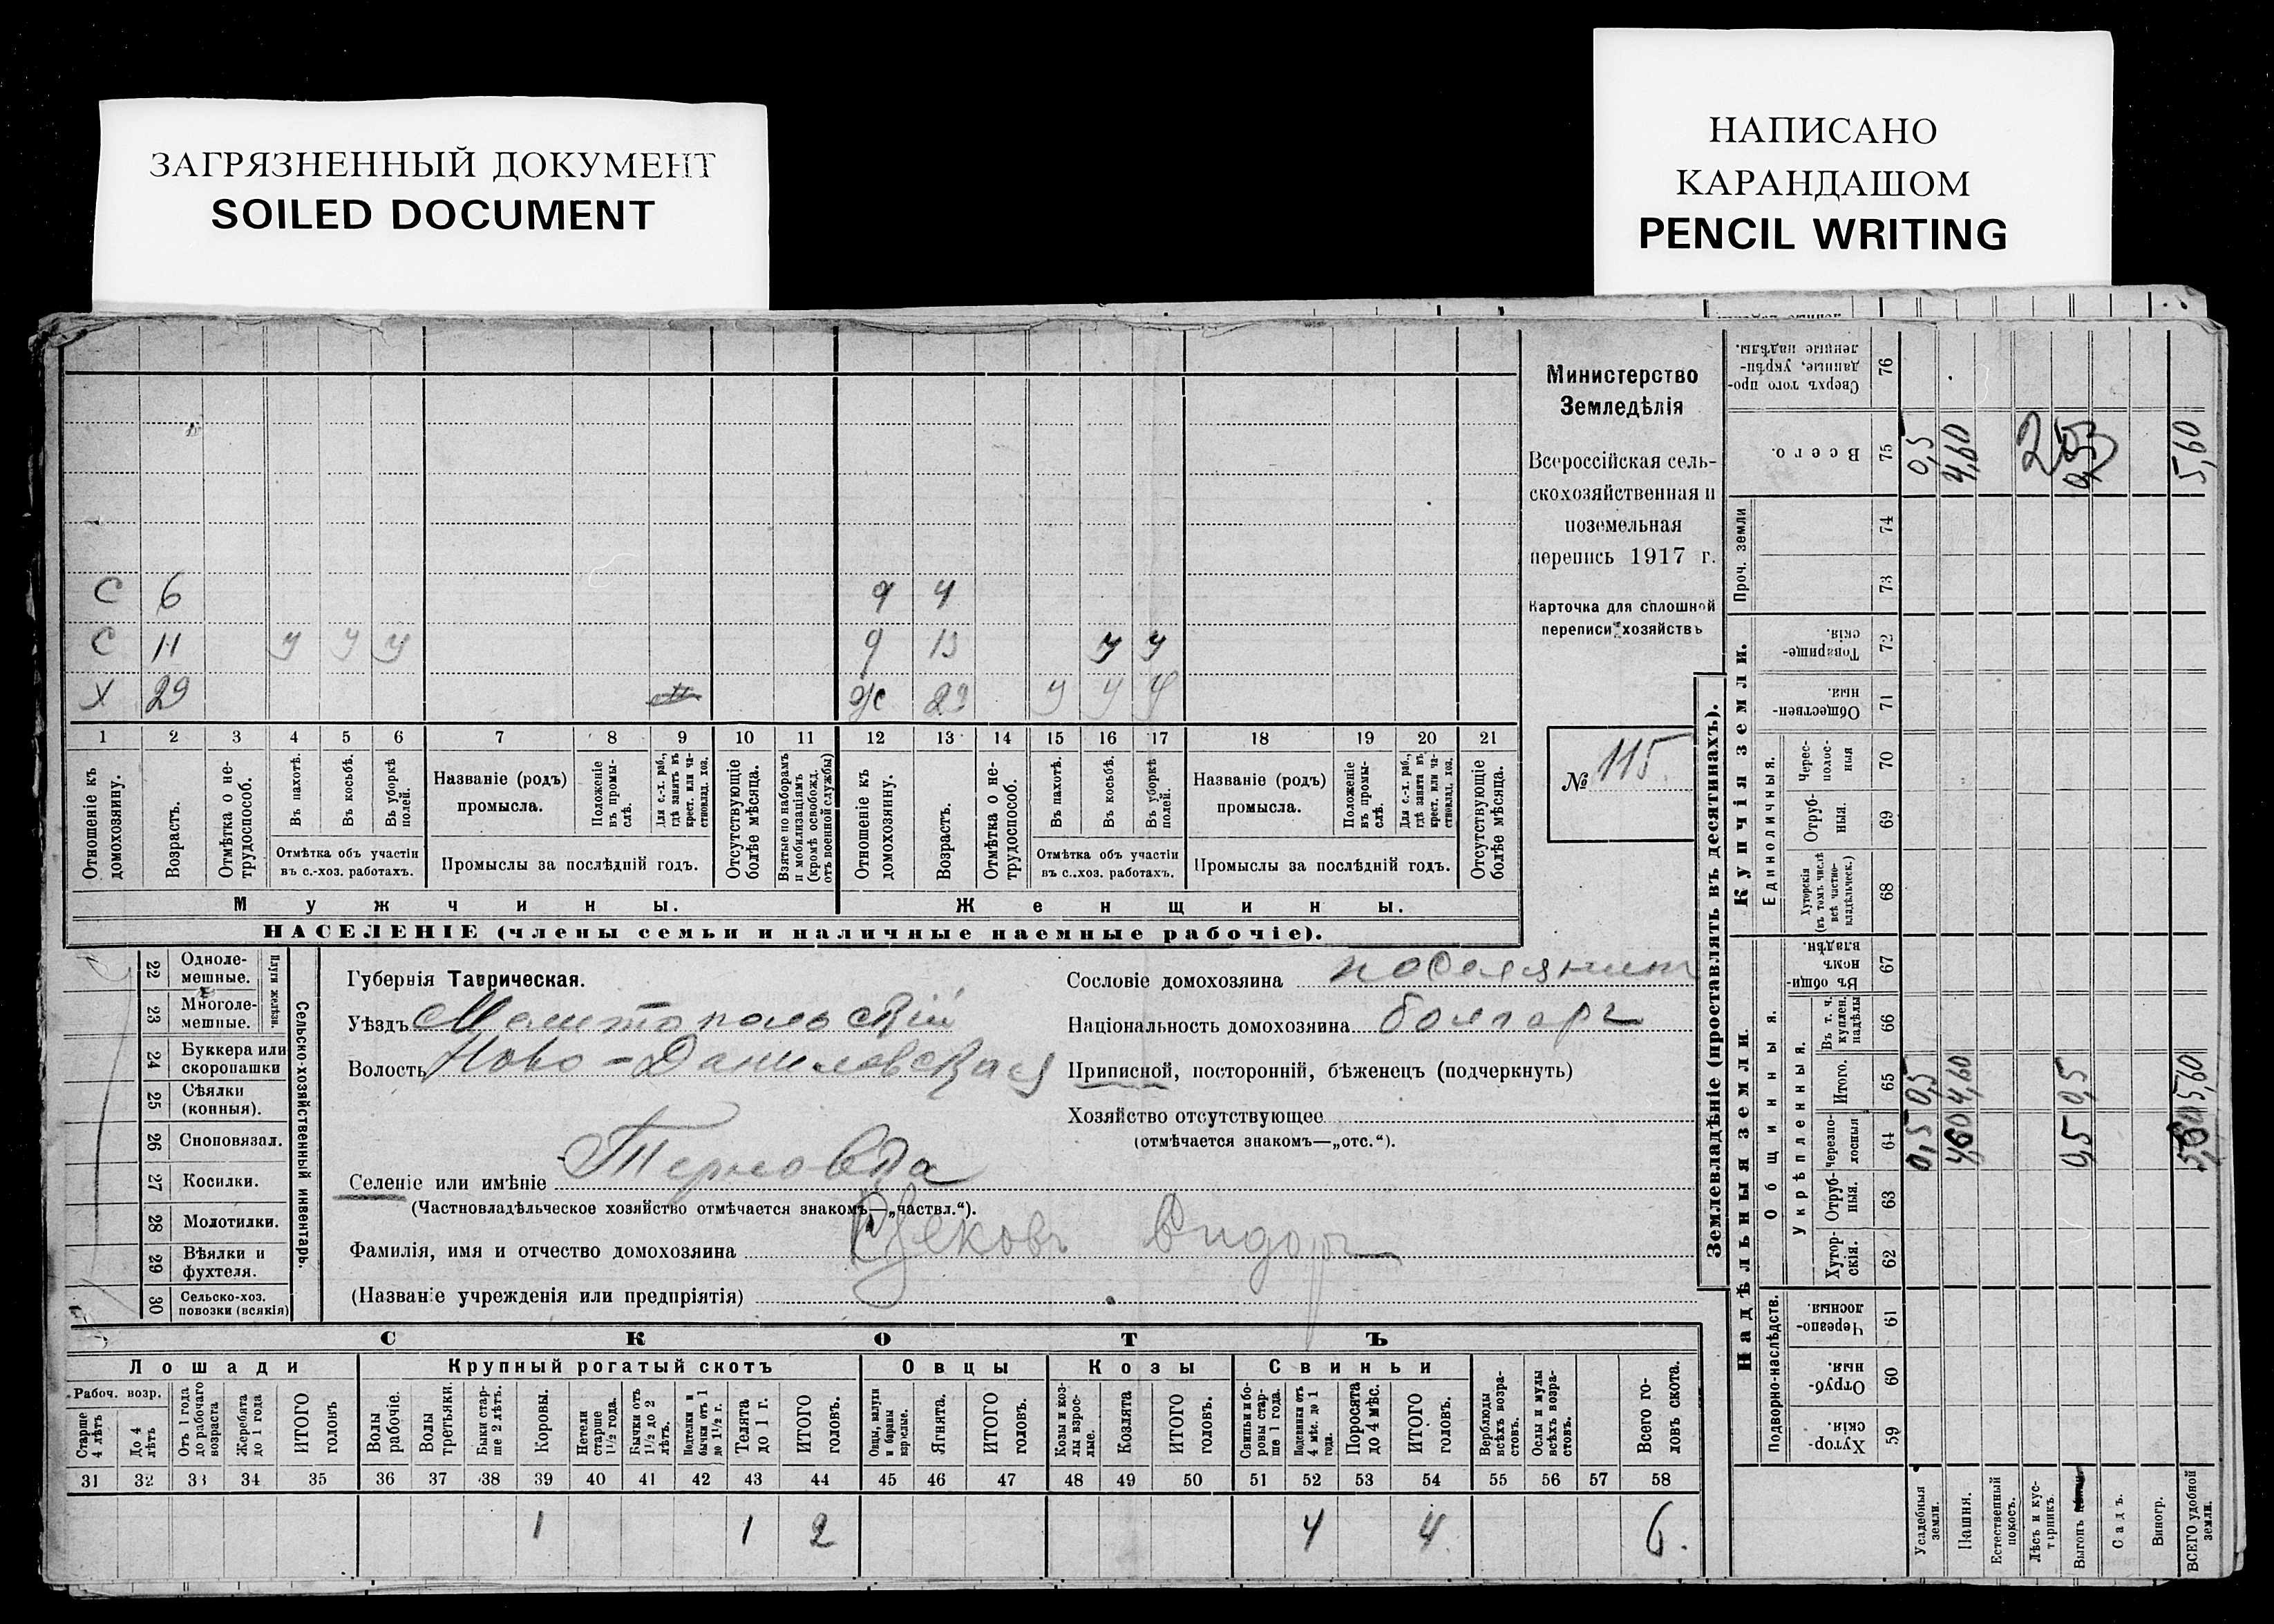 ЗАГРЯЗНЕННЫЙ ДОКУМЕНТ
SOILED DOCUMENT
НАПИСАНО
КАРАНДАШОМ
PENCIL WRITING
Министерство
Земледѣлія
Всероссійская сель-
скохозяйственная и
поземельная
перепись 1917 г.
Карточка для сплошной
переписи хозяйствъ
№ 115
С 6 д 4
С 11 у у у д 13 у у
Х 29 ж 29 у у у
1 2 3 4 5 6 7 8 9 10 11 12 13 14 15 16 17 18 19 20 21
Отношеніе къ домохозяину.
Возрастъ.
Отмѣтка о не-трудоспособ.
Въ пахотѣ.
Въ косьбѣ.
Въ уборкѣ полей.
Отмѣтка объ участіи
въ с.-хоз. работахъ.
Названіе (родъ)
промысла.
Положеніе въ промы-слѣ.
Для с.-х. раб., гдѣ занятъ въ крест. или ча-стновлад. хоз.
Промыслы за послѣдній годъ.
Отсутствующіе болѣе мѣсяца.
Взятые по наборамъ и мобилизаціямъ (кромѣ освобожд. отъ военной службы)
Отношеніе къ домохозяину.
Возрастъ.
Отмѣтка о не-трудоспособ.
Въ пахотѣ.
Въ косьбѣ.
Въ уборкѣ полей.
Отмѣтка объ участіи
въ с.-хоз. работахъ.
Названіе (родъ)
промысла.
Положеніе въ промы-слѣ.
Для с.-х. раб., гдѣ занята въ крест. или ча-стновлад. хоз.
Промыслы за послѣдній годъ.
Отсутствующіе болѣе мѣсяца.
Мужчины.
Женщины.
НАСЕЛЕНІЕ (члены семьи и наличные наемные рабочіе).
22 Одноле-мешные.
23 Многоле-мешные.
Плуги желѣзн.
24 Буккера или скоропашки
25 Сѣялки (конныя).
26 Сноповязал.
27 Косилки.
28 Молотилки.
29 Вѣялки и фухтеля.
30 Сельско-хоз. повозки (всякія)
Сельско-хозяйственный инвентарь.
Губернія Таврическая.
Уѣздъ Мелитопольскій
Волость Ново-Даниловская
Селеніе или имѣніе Терновка
(Частновладѣльческое хозяйство отмѣчается знакомъ—„частвл.“).
Фамилія, имя и отчество домохозяина
(Названіе учрежденія или предпріятія)
Сословіе домохозяина поселянинъ
Національность домохозяина болгаръ
Приписной, посторонній, бѣженецъ (подчеркнуть)
Хозяйство отсутствующее
(отмѣчается знакомъ—„отс.“).
СКОТЪ
Лошади
Крупный рогатый скотъ
Овцы
Козы
Свиньи
Рабоч. возр.
Старше 4 лѣтъ
До 4 лѣтъ
Отъ 1 года до рабочаго возраста
Жеребята до 1 года
ИТОГО головъ
Волы рабочіе.
Волы третьяки.
Быки стар-ше 2 лѣтъ.
Коровы.
Нетели старше 1 1/2 года.
Бычки отъ 1 1/2 до 2 лѣтъ.
Подтелки и бычки отъ 1 до 1 1/2 г.
Телята до 1 г.
ИТОГО головъ.
Овцы, валухи и бараны взрослые.
Ягнята.
ИТОГО головъ.
Козы и коз-лы взрос-лые.
Козлята
ИТОГО головъ.
Свиньи и бо-ровы стар-ше 1 года.
Подсвинки отъ 4 мѣс. до 1 года.
Поросята до 4 мѣс.
ИТОГО головъ.
Верблюды всѣхъ возра-стовъ.
Ослы и мулы всѣхъ возра-стовъ.
Всего го-ловъ скота.
31 32 33 34 35 36 37 38 39 40 41 42 43 44 45 46 47 48 49 50 51 52 53 54 55 56 57 58
1 1 2 4 4 6.
Землевладѣніе (проставлять въ десятинахъ).
Надѣльныя земли.
Купчія земли.
Проч. земли
Подворно-наслѣдств.
Общинныя.
Укрѣпленныя.
Единоличныя.
Сверхъ того про-данные, укрѣп-ленные надѣлы. 76
Всего. 75 0,5 4,60 5,60
74
73
Товарище-скія. 72
Обществен-ныя. 71
Черес-полос-ныя 70
Отруб-ныя. 69
Хуторскія (въ томъ числѣ всѣ частно-владѣльческ.) 68
Въ общин-номъ владѣн. 67
Въ т. ч. куплен. надѣлы 66
Итого. 65 0,5 4,60 0,5 5,60
Черезпо-лосныя 64 0,5 0,5
Отруб-ныя. 63
Хутор-скія. 62
Черезпо-лосныя. 61
Отруб-ныя. 60
Хутор-скія. 59
Усадебныя земли.
Пашня.
Естественный покосъ.
Лѣсъ и кус-тарникъ.
Выгонъ
Садъ.
Виногр.
ВСЕГО удобной земли.